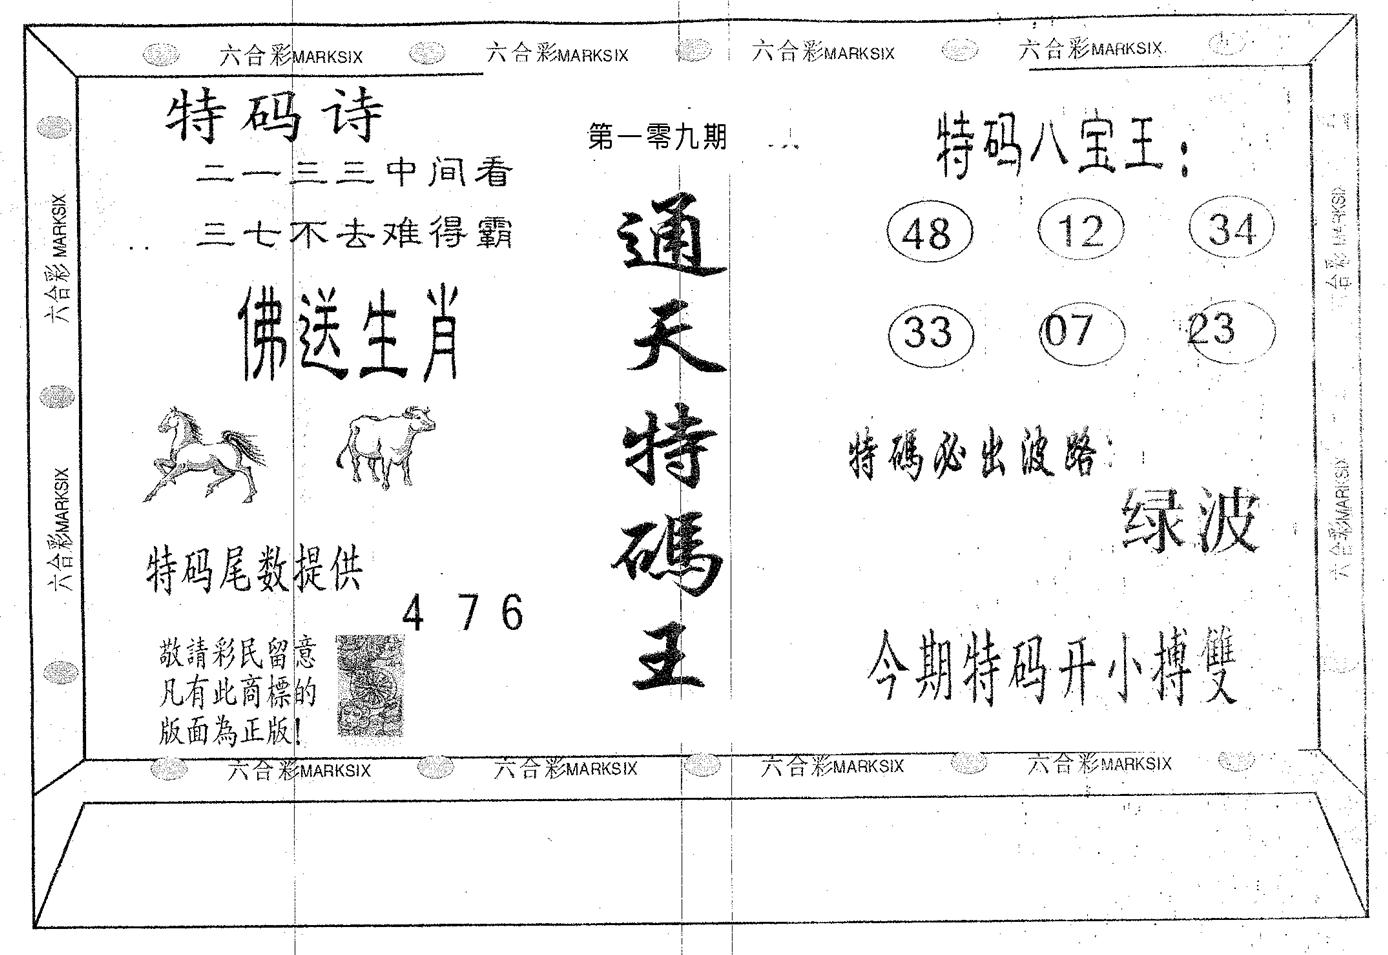 六合彩MARKSIX 六合彩MARKSIX 六合彩MARKSIX 六合彩MARKSIX
六合彩MARKSIX
六合彩MARKSIX
特码诗
二一三三中间看
三七不去难得霸
佛送生肖
特码尾数提供
4 7 6
敬請彩民留意
凡有此商標的
版面為正版!
第一零九期
通天特碼王
特码八宝王:
48 12 34
33 07 23
特碼必出波路:
绿波
今期特码开小搏雙
六合彩MARKSIX
六合彩MARKSIX
六合彩MARKSIX 六合彩MARKSIX 六合彩MARKSIX 六合彩MARKSIX